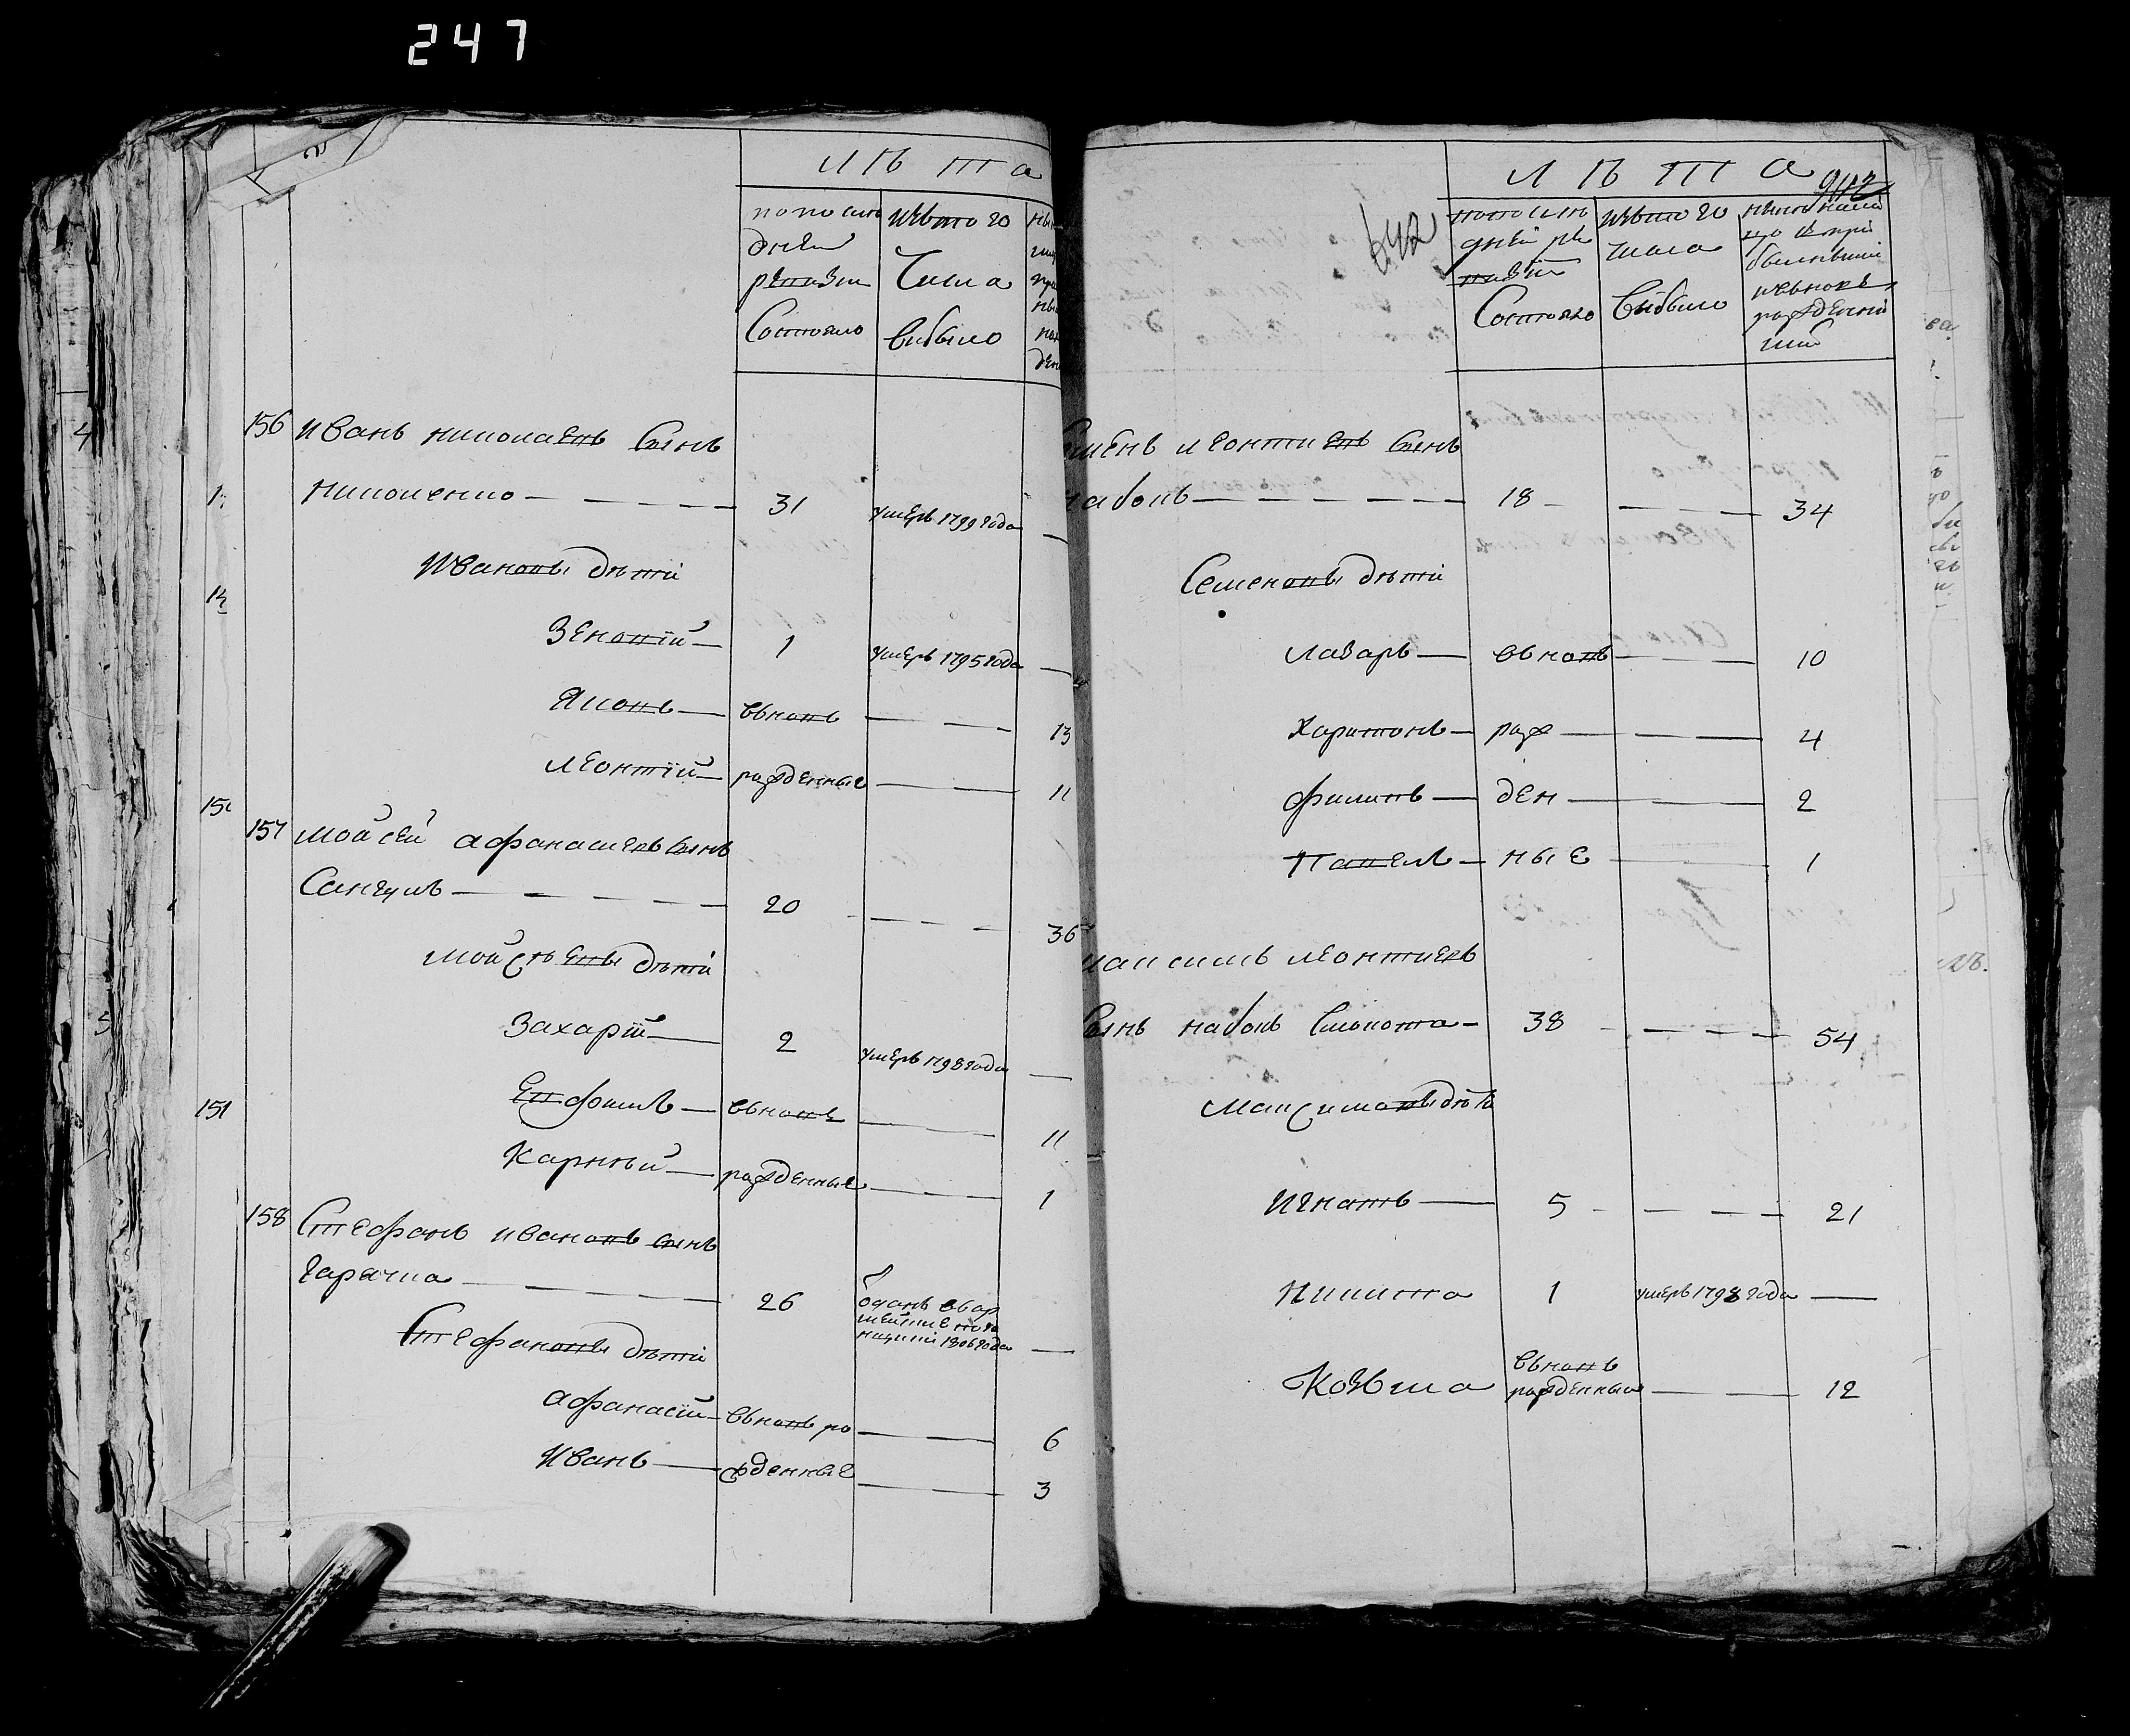 247
лѣта
по посля
дней
ревизи
Состояло
изътого
числа
выбыло
156 Иванъ николаевъ сынъ
Николенко 31 умеръ 1799 года
Ивановы дѣти
Зеновій 1 умеръ 1795 года
Яковъ вьновь 13
леонтій рожденные 11
157 Мойсей афанасиевъ сынъ
Сангулъ 20 36
Мойсѣевы дѣти
Захарій 2 умеръ 1798 года
Евфимъ вьновь 11
Карпѣй рожденные 1
158 Стефанъ ивановъ сынъ
Гарачка 26 отданъ въ ар
1806 года
Стефановы дѣти
афанасій вьновь ро 6
Иванъ жденные 3
лѣта
942
642
по после
дней ре
визіи
Состояло
изътого
числа
выбыло
рожденны
ми
Семенъ леонтиевъ сынъ
набокъ 18 34
Семеновы дѣти
лазаръ вьновь 10
Харитонъ рож 4
филипъ ден 2
Павелъ ные 1
максимъ леонтиевъ
сынъ набокъ 38 54
Максимовы дѣти
Игнатъ 5 21
Никита 1 умеръ 1798 года
Козьма вьновь
рожденные 12